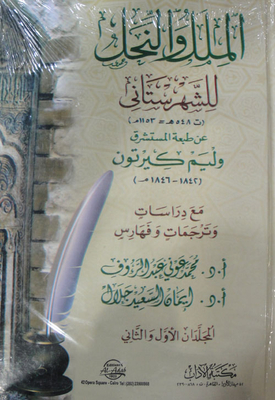 الملل والنحل
للشهرستاني
(ت ٥٤٨ هـ = ١١٥٣ م)
عن طبعة المستشرق
وليم كيرتون
(١٨٤٢-١٨٤٦ م)
مع دراسات
وترجمات وفهارس
أ.د. محمد عوني عبد الرؤوف
أ.د. إيمان السعيد جلال
المجلدان الأول والثاني
مكتبة الآداب
Al-Adab